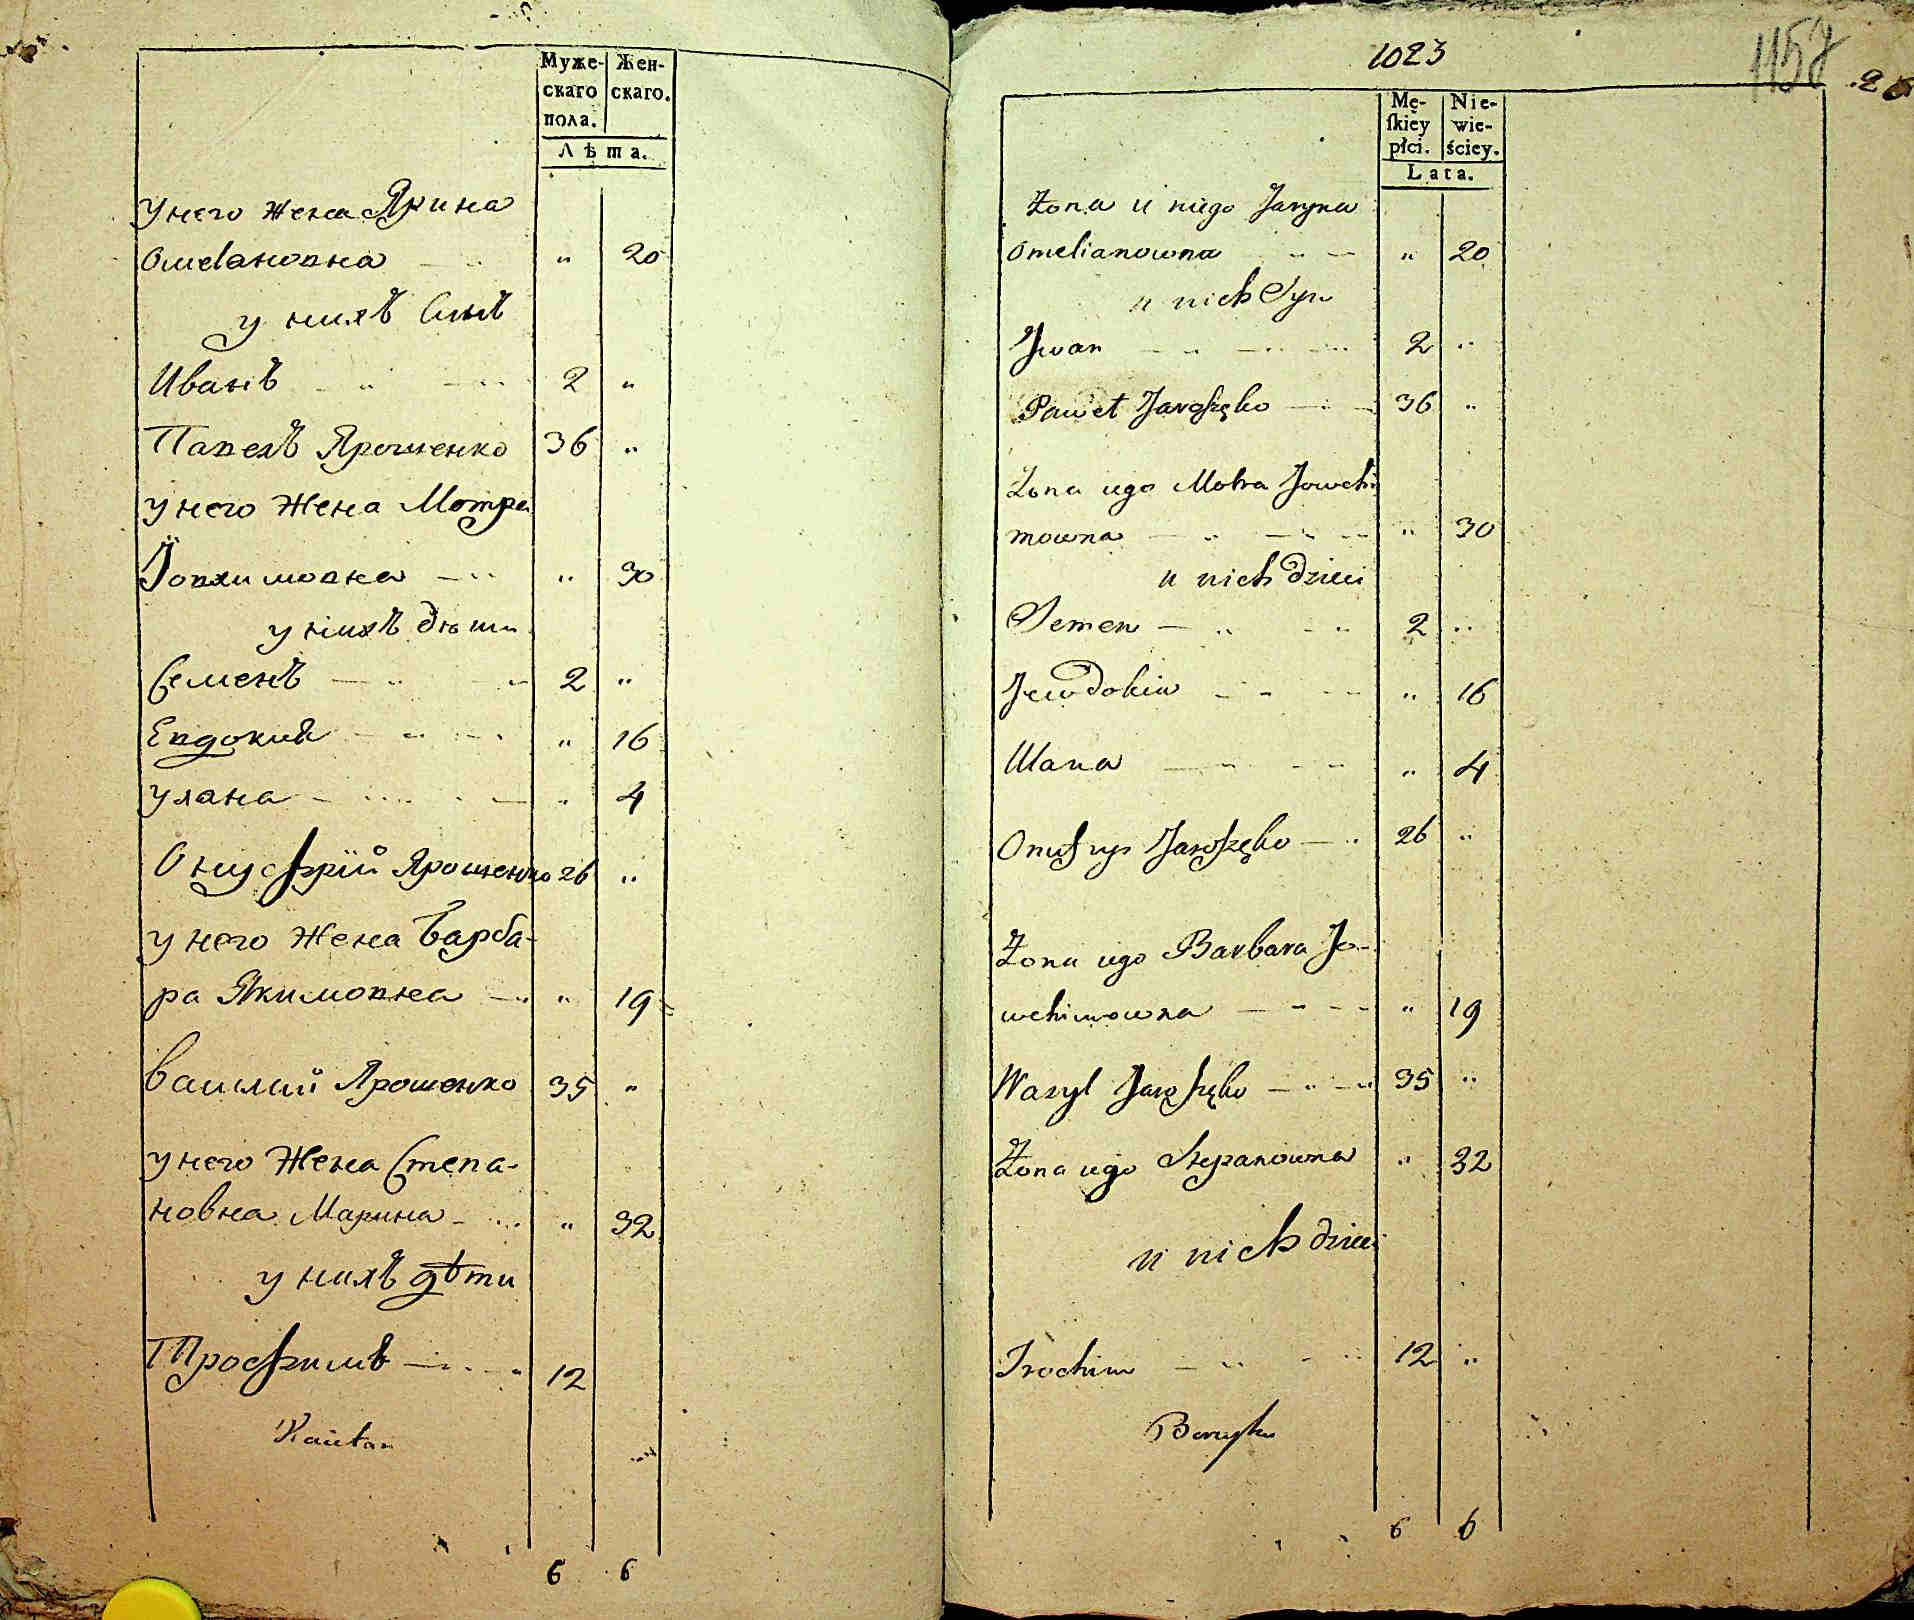 Муже- Жен-
скаго скаго.
пола.
Лѣта.
У него жена Ярина
Омеляновна " 20
у нихъ Синъ
Иванъ 2 "
Павелъ Ярошенко 36 "
у него Жена Мотра
Іовхимовна " 30
у нихъ дѣти
Семенъ 2 "
Евдокия " 16
Уляна " 4
Онуфрїй Ярошенко 26 "
у него Жена Варва-
ра Якимовна " 19
Василий Ярошенко 35 "
у него Жена Степа-
новна Марина " 32
у нихъ дѣти
Трофимъ 12
6 6
1023
1157
Mę- Nie-
ſkiey wie-
płci. ściey.
Lata.
Żona u niego Jaryna
Omelianowna " 20
u nich Syn
Jwan 2 "
Paweł Jaroszęko 36 "
Żona iego Motra Jowchi
mowna " 30
u nich dzieci
Semen 2 "
Jewdokia " 16
Ulana " 4
Onufry Jaroszęko 26 "
Żona iego Barbara Jo-
wchimowna " 19
Wasyl Jaroszęko 35 "
Żona iego Stepanowna " 32
u nich dzieci
Trochim 12 "
6 6